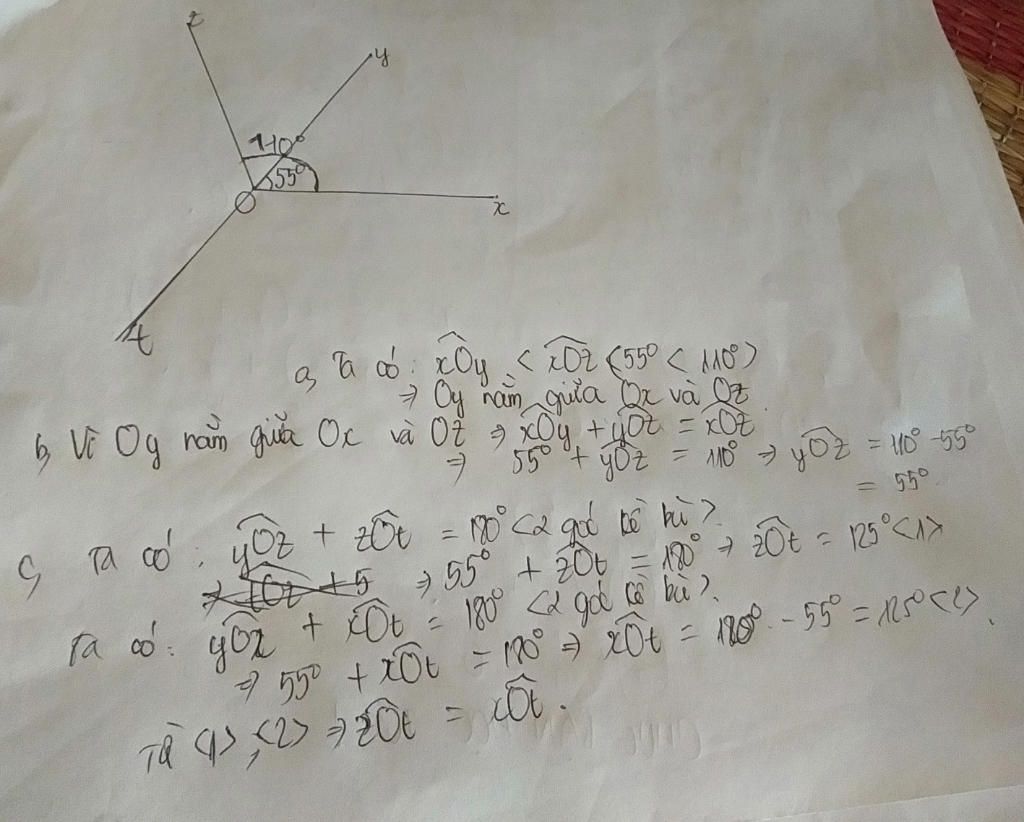 z
y
110°
55°
O
x
t
a, Ta có: xOy < xOz (55° < 110°)
⇒ Oy nằm giữa Ox và Oz
b, Vì Oy nằm giữa Ox và Oz ⇒ xOy + yOz = xOz
⇒ 55° + yOz = 110° ⇒ yOz = 110° - 55°
= 55°.
c, Ta có: yOz + zOt = 180° <2 góc kề bù>.
⇒ 55° + zOt = 180° ⇒ zOt = 125° <1>
Ta có: yOx + xOt = 180° <2 góc kề bù>.
⇒ 55° + xOt = 180° ⇒ xOt = 180° - 55° = 125° <2>.
Từ <1>, <2> ⇒ zOt = xOt.